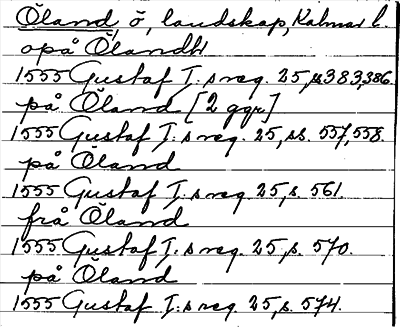 Öland, ö, landskap, Kalmar l.
opå Ölandh
1555 Gustaf I:s reg. 25, ss 383, 386.
på Öland [2 ggr]
1555 Gustaf I:s reg. 25, ss. 557, 558.
på Öland
1555 Gustaf I:s reg. 25, s. 561.
frå Öland
1555 Gustaf I:s reg. 25, s. 570.
på Öland
1555 Gustaf I:s reg. 25, s. 574.